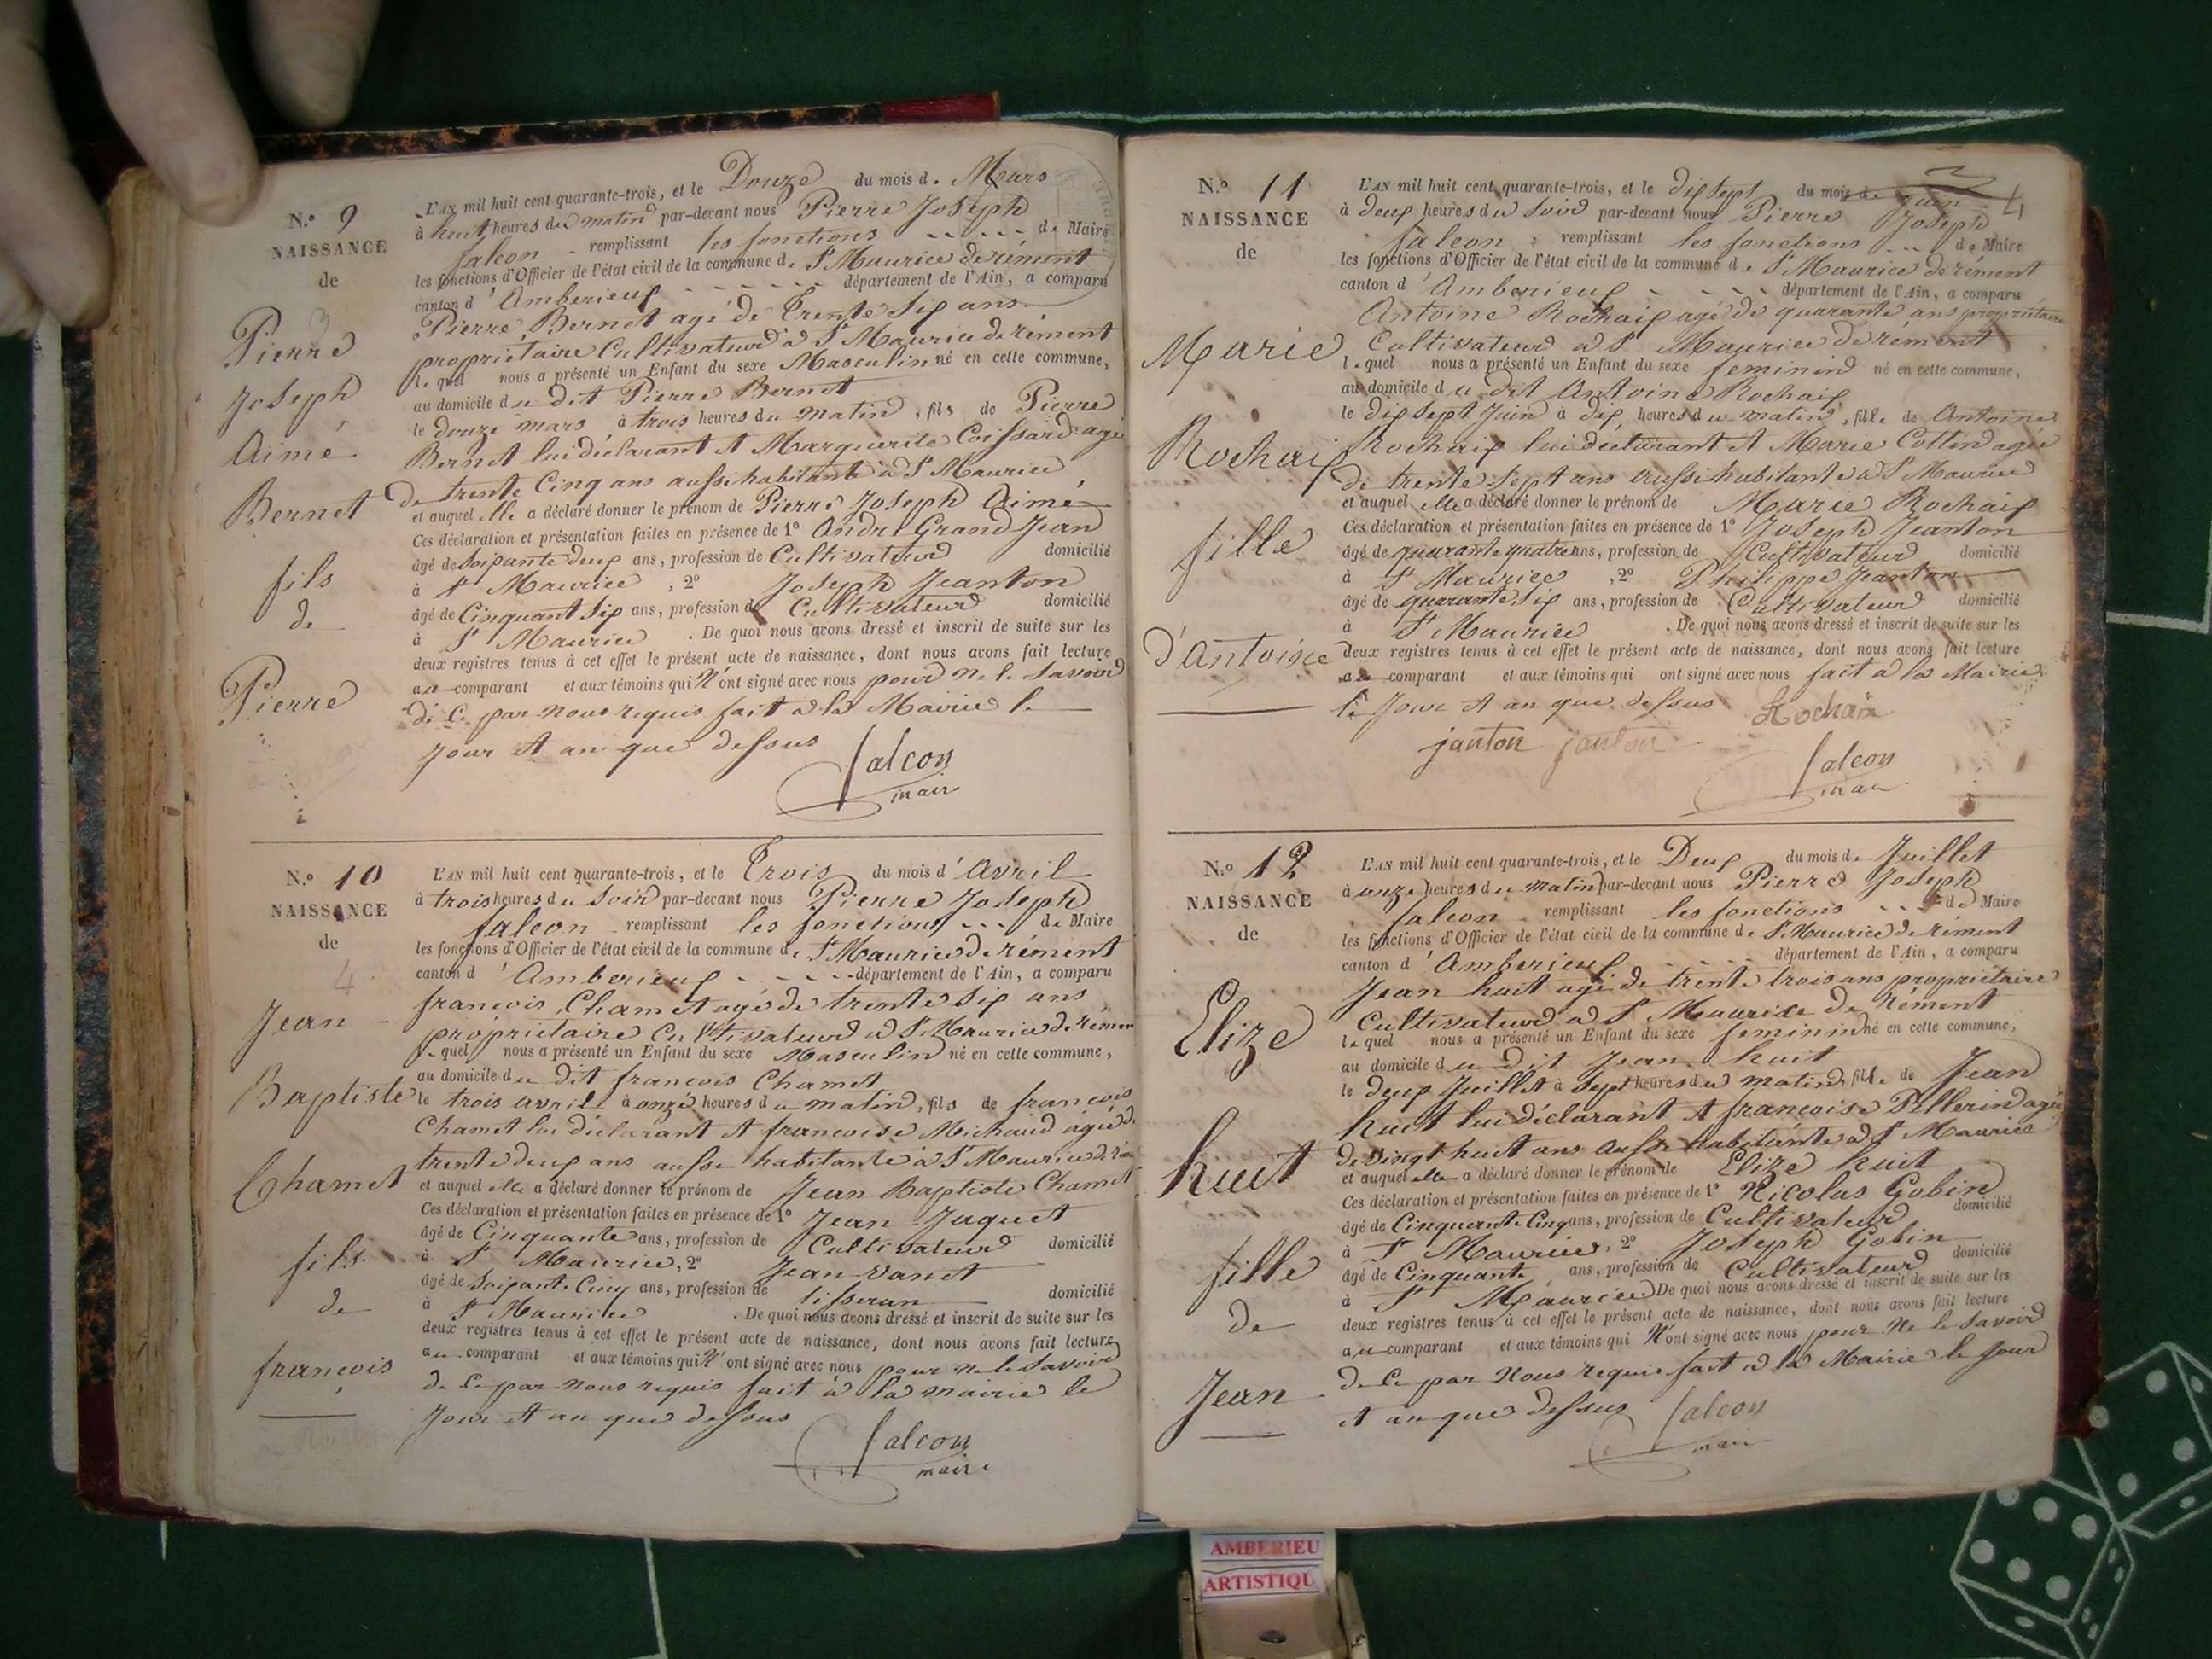 N.º 9
NAISSANCE
de
Pierre
Joseph
Aimé
Bernet
fils
de
Pierre
L'AN mil huit cent quarante-trois, et le Douze du mois d. Mars
à huit heures du matin par-devant nous Pierre Joseph
falcon remplissant les fonctions de Maire
les fonctions d'Officier de l'état civil de la commune de St Maurice de rément
canton d'Amberieux département de l'Ain, a comparu
Pierre Bernet agé de Trente Six ans
propriétaire Cultivateur à St Maurice de rément
lequel nous a présenté un Enfant du sexe Masculin né en cette commune,
au domicile du dit Pierre Bernet
le douze mars à trois heures du matin, fils de Pierre
Bernet lui déclarant et Marguerite Coissard agée
de trente Cinq ans aussi habitante à St Maurice
et auquel elle a déclaré donner le prénom de Pierre Joseph Aimé
Ces déclaration et présentation faites en présence de 1º André Grand Jean
âgé de Soixante deux ans, profession de Cultivateur domicilié
à St Maurice, 2º Joseph Jeanton
âgé de Cinquant Six ans, profession de Cultivateur domicilié
à St Maurice. De quoi nous avons dressé et inscrit de suite sur les
deux registres tenus à cet effet le présent acte de naissance, dont nous avons fait lecture
au comparant et aux témoins qui N'ont signé avec nous pour ne le Savoir
de Ce par nous requis fait à la Mairie le
jour et an que dessus
falcon
mair
N.º 10
NAISSANCE
de
4
Jean
Baptiste
Chamet
fils
de
francois
L'AN mil huit cent quarante-trois, et le Trois du mois d'Avril
à trois heures du Soir par-devant nous Pierre Joseph
falcon remplissant les fonctions de Maire
les fonctions d'Officier de l'état civil de la commune de St Maurice de rément
canton d'Amberieux département de l'Ain, a comparu
francois Chamet agé de trente Six ans
propriétaire Cultivateur à St Maurice de rément
lequel nous a présenté un Enfant du sexe Masculin né en cette commune,
au domicile du dit francois Chamet
le trois avril à onze heures du matin, fils de francois
Chamet lui déclarant et francoise Michaud agée de
trente deux ans aussi habitante à St Maurice de
et auquel elle a déclaré donner le prénom de Jean Baptiste Chamet
Ces déclaration et présentation faites en présence de 1º Jean Jaquet
âgé de Cinquante ans, profession de Cultivateur domicilié
à St Maurice, 2º Jean vanet
âgé de Soixante Cinq ans, profession de tisseran domicilié
à St Maurice. De quoi nous avons dressé et inscrit de suite sur les
deux registres tenus à cet effet le présent acte de naissance, dont nous avons fait lecture
au comparant et aux témoins qui N'ont signé avec nous pour ne le Savoir
de Ce par nous requis fait à la mairie le
jour et an que dessus
falcon
maire
N.º 11
NAISSANCE
de
Marie
Rochaix
fille
d'Antoine
4
L'AN mil huit cent quarante-trois, et le dix Sept du mois de juin
à deux heures du Soir par-devant nous Pierre Joseph
falcon remplissant les fonctions de Maire
les fonctions d'Officier de l'état civil de la commune de St Maurice de rément
canton d'Amberieux département de l'Ain, a comparu
Antoine Rochaix agé de quarante ans propriétaire
Cultivateur à St Maurice de rément
lequel nous a présenté un Enfant du sexe feminin né en cette commune,
au domicile du dit Antoine Rochaix
le dix Sept Juin à dix heures du matin, fille de Antoine
Rochaix lui déclarant et Marie Cottin agée
de trente Sept ans aussi habitante à St Maurice
et auquel elle a déclaré donner le prénom de Marie Rochaix
Ces déclaration et présentation faites en présence de 1º Joseph Jeanton
âgé de quarante quatre ans, profession de Cultivateur domicilié
à St Maurice, 2º Philippe Jeanton
âgé de quarante Six ans, profession de Cultivateur domicilié
à St Maurice. De quoi nous avons dressé et inscrit de suite sur les
deux registres tenus à cet effet le présent acte de naissance, dont nous avons fait lecture
au comparant et aux témoins qui ont signé avec nous fait à la Mairie
le Jour et an que dessus Rochaix
janton janton
falcon
N.º 12
NAISSANCE
de
Elize
huit
fille
de
Jean
L'AN mil huit cent quarante-trois, et le Deux du mois de Juillet
à onze heures du matin par-devant nous Pierre Joseph
falcon remplissant les fonctions de Maire
les fonctions d'Officier de l'état civil de la commune de St Maurice de rément
canton d'Amberieux département de l'Ain, a comparu
Jean huit agé de trente trois ans propriétaire
Cultivateur à St Maurice de rément
lequel nous a présenté un Enfant du sexe feminin né en cette commune,
au domicile du dit Jean huit
le deux Juillet à Sept heures du matin, fille de Jean
huit lui déclarant et francoise Pellerin agée
de vingt huit ans aussi habitante à St Maurice
et auquel elle a déclaré donner le prénom de Elize huit
Ces déclaration et présentation faites en présence de 1º Nicolas Gobin
âgé de Cinquante Cinq ans, profession de Cultivateur domicilié
à St Maurice, 2º Joseph Gobin
âgé de Cinquante ans, profession de Cultivateur domicilié
à St Maurice De quoi nous avons dressé et inscrit de suite sur les
deux registres tenus à cet effet le présent acte de naissance, dont nous avons fait lecture
au comparant et aux témoins qui N'ont signé avec nous pour ne le Savoir
de Ce par nous requis fait à la Mairie le Jour
et an que dessus falcon
mair
AMBERIEU
ARTISTIQU